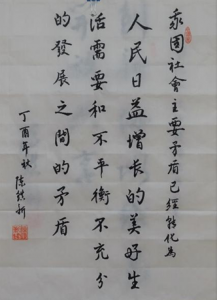 我国社會主要矛盾已經转化為
人民日益增长的美好生
活需要和不平衡不充分
的發展之間的矛盾
丁酉年秋 陈